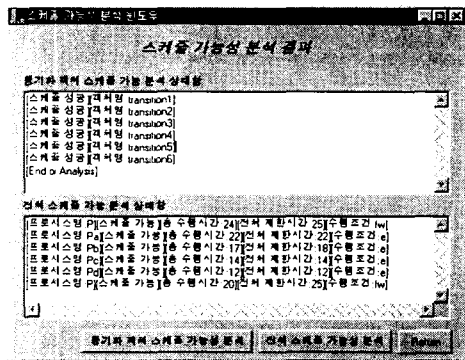 스케줄 가능성 분석 윈도우
스케줄 가능성 분석 결과
동기화 객체 스케줄 가능 분석 상태창
[스케줄 성공][객체명 transition1]
[스케줄 성공][객체명 transition2]
[스케줄 성공][객체명 transition3]
[스케줄 성공][객체명 transition4]
[스케줄 성공][객체명 transition5]
[스케줄 성공][객체명 transition6]
[End of Analysis]
전체 스케줄 가능 분석 상태창
[프로시스명 P][스케줄 가능][총 수행시간 24][전체 제한시간 25][수행조건:fw]
[프로시스명 Pa][스케줄 가능][총 수행시간 22][전체 제한시간 22][수행조건:e]
[프로시스명 Pb][스케줄 가능][총 수행시간 17][전체 제한시간 18][수행조건:e]
[프로시스명 Pc][스케줄 가능][총 수행시간 14][전체 제한시간 14][수행조건:e]
[프로시스명 Pd][스케줄 가능][총 수행시간 12][전체 제한시간 12][수행조건:e]
[프로시스명 P][스케줄 가능][총 수행시간 20][전체 제한시간 25][수행조건:fw]
동기화 객체 스케줄 가능성 분석
전체 스케줄 가능성 분석
Return